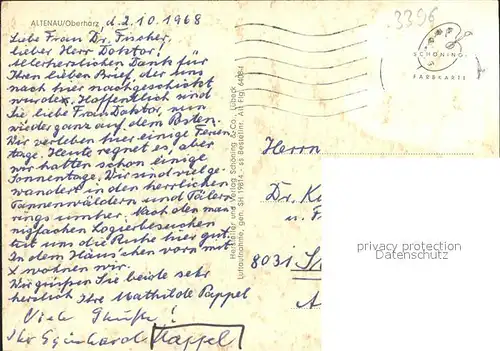 ALTENAU/Oberharz d. 2.10.1968
Liebe Frau Dr. Fischer,
lieber Herr Doktor!
Allerherzlichsten Dank für
Ihren lieben Brief, der uns
nach hier nachgeschickt
wurde. Hoffentlich sind
Sie liebe Frau Doktor, nun
wieder ganz auf dem Posten.
Wir verleben hier einige Ferien-
tage. Heute regnet es, aber
wir hatten schon einige
Sonnentage. Wir sind viel ge-
wandert in den herrlichen
Tannenwäldern und Tälern
rings umher. Nach den man-
nigfachen Logierbesuchen
tut uns die Ruhe hier gut.
In dem Häuschen vorn mit
x wohnen wir.
Wir grüßen Sie beide sehr
herzlich Ihre Mathilde Pappel
Viele Grüße!
Ihr Eginhard Pappel
Hersteller und Verlag Schöning & Co., Lübeck
Luftaufnahme, gen. SH 19814 - ss Bestellnr. Alt Flg. 6408-4
3396
SCHÖNING-
FARBKARTE
Herrn
Dr. K
u. F
8031
privacy protection
by Oldthing.de